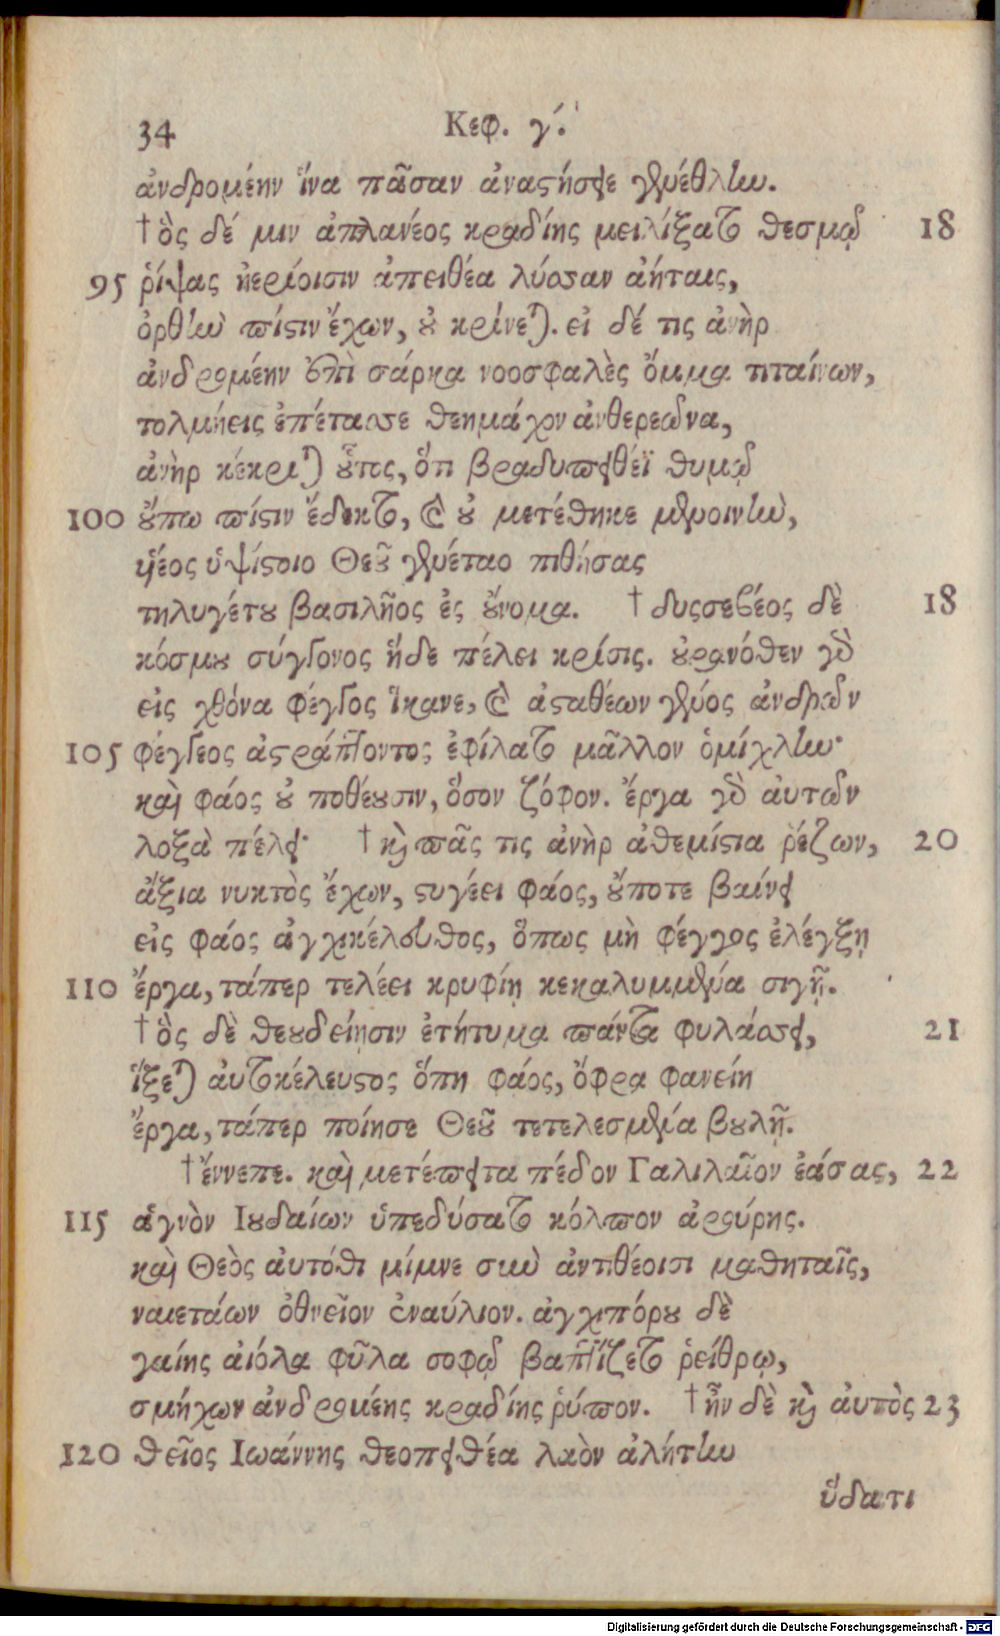 34 Κεφ. γ΄.
ἀνδρομέην ἵνα πᾶσαν ἀναστήσειε γενέθλην.
† ὃς δέ μιν ἀπλανέος κραδίης μειλίξατο θεσμῷ 18
95 ῥίψας ἠερίοισιν ἀπειθέα λύσσαν ἀήταις,
ὀρθὴν πίστιν ἔχων, οὐ κρίνεται. εἰ δέ τις ἀνὴρ
ἀνδρομέην ἐπὶ σάρκα νοοσφαλὲς ὄμμα τιταίνων,
τολμήεις ἐπέτασσε θεημάχον ἀνθερεῶνα,
ἀνὴρ κέκριται οὗτος, ὅτι βραδυπειθέϊ θυμῷ
100 οὔπω πίστιν ἔδεκτο, καὶ οὐ μετέθηκε μενοινὴν,
υἱέος ὑψίστοιο Θεοῦ γενέταο πιθήσας
τηλυγέτου βασιλῆος ἐς οὔνομα. † δυσσεβέος δὲ 18
κόσμου σύγγονος ἥδε πέλει κρίσις. οὐρανόθεν γὰρ
εἰς χθόνα φέγγος ἵκανε, καὶ ἀσταθέων γένος ἀνδρῶν
105 φέγγεος ἀστράπτοντος ἐφίλατο μᾶλλον ὁμίχλην·
καὶ φάος οὐ ποθέουσιν, ὅσον ζόφον. ἔργα γὰρ αὐτῶν
λοξὰ πέλει· † καὶ πᾶς τις ἀνὴρ ἀθεμίστια ῥέζων, 20
ἄξια νυκτὸς ἔχων, στυγέει φάος, οὔποτε βαίνει
εἰς φάος ἀγχικέλευθος, ὅπως μὴ φέγγος ἐλέγξῃ
110 ἔργα, τάπερ τελέει κρυφίῃ κεκαλυμμένα σιγῇ.
† ὃς δὲ θεουδείῃσιν ἐτήτυμα πάντα φυλάσσει, 21
ἵξεται αὐτοκέλευστος ὅπη φάος, ὄφρα φανείη
ἔργα, τάπερ ποίησε Θεοῦ τετελεσμένα βουλῇ.
† ἔννεπε. καὶ μετέπειτα πέδον Γαλιλαῖον ἐάσας, 22
115 ἁγνὸν Ἰουδαίων ὑπεδύσατο κόλπον ἀρούρης.
καὶ Θεὸς αὐτόθι μίμνε σὺν ἀντιθέοισι μαθηταῖς,
ναιετάων ὀθνεῖον ἐναύλιον. ἀγχιπόρου δὲ
γαίης αἰόλα φῦλα σοφῷ βαπτίζετο ῥείθρῳ,
σμήχων ἀνδρομέης κραδίης ῥύπον. † ἦν δὲ καὶ αὐτὸς 23
120 θεῖος Ἰωάννης θεοπειθέα λαὸν ἀλήτην
ὕδατι
Digitalisierung gefördert durch die Deutsche Forschungsgemeinschaft - DFG